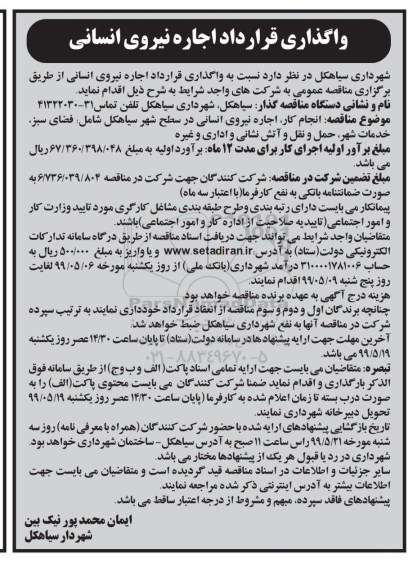 واگذاری قرارداد اجاره نیروی انسانی
شهرداری سیاهکل در نظر دارد نسبت به واگذاری قرارداد اجاره نیروی انسانی از طریق
برگزاری مناقصه عمومی به شرکت های واجد شرایط به شرح ذیل اقدام نماید.
نام و نشانی دستگاه مناقصه گذار: سیاهکل، شهرداری سیاهکل تلفن تماس ۳۱-۴۱۳۲۲۰۳۰
موضوع مناقصه: انجام کار، اجاره نیروی انسانی در سطح شهر سیاهکل شامل: فضای سبز،
خدمات شهر، حمل و نقل و آتش نشانی و اداری و غیره
مبلغ برآورد اولیه اجرای کار برای مدت ۱۲ ماه: برآورد اولیه به مبلغ ۶۷/۳۶۰/۳۹۸/۰۴۸ ریال
می باشد.
مبلغ تضمین شرکت در مناقصه: شرکت کنندگان جهت شرکت در مناقصه ۶/۷۳۶/۰۳۹/۸۰۴ به
صورت ضمانتنامه بانکی به نفع کارفرما (با اعتبار سه ماه)
پیمانکار می بایست دارای رتبه بندی وطرح طبقه بندی مشاغل کارگری مورد تایید وزارت کار
و امور اجتماعی (تاییدیه صلاحیت از اداره کار و امور اجتماعی) باشند.
متقاضیان واجد شرایط می توانند جهت دریافت اسناد مناقصه از طریق درگاه سامانه تدارکات
الکترونیکی دولت(ستاد) به آدرس www.setadiran.ir و با واریز به مبلغ ۵۰۰/۰۰۰ ریال به
حساب ۳۱۰۰۰۰۱۷۸۱۰۰۶ درآمد شهرداری (بانک ملی) از روز یکشنبه مورخه ۹۹/۰۵/۰۶ لغایت
روز پنج شنبه ۹۹/۰۵/۰۹ اقدام نمایند.
هزینه درج آگهی به عهده برنده مناقصه خواهد بود.
چنانچه برندگان اول و دوم و سوم مناقصه از انعقاد قرارداد خودداری نمایند به ترتیب سپرده
شرکت در مناقصه آنها به نفع شهرداری سیاهکل ضبط خواهد شد.
آخرین مهلت جهت ارایه پیشنهادها در سامانه دولت(ستاد) تا پایان ساعت ۱۴/۳۰ عصر روز یکشنبه
۹۹/۵/۱۹ می باشد.
تبصره: متقاضیان می بایست جهت ارایه تمامی اسناد پاکت (الف و ب و ج) از طریق سامانه فوق
الذکر بارگذاری و اقدام نماید ضمنا شرکت کنندگان می بایست محتوی پاکت (الف) را به
صورت درب بسته تا زمان اعلام شده به کارفرما (پایان ساعت ۱۴/۳۰ عصر روز یکشنبه ۹۹/۰۵/۱۹
تحویل دبیرخانه شهرداری نمایند.
تاریخ بازگشایی پیشنهادهای ارایه شده با حضور شرکت کنندگان (همراه با معرفی نامه) روز سه
شنبه مورخه ۹۹/۵/۲۱ راس ساعت ۱۱ صبح به آدرس سیاهکل- ساختمان شهرداری خواهد بود.
شهرداری در رد یا قبول هر یک از پیشنهادها مختار می باشد.
سایر جزئیات و اطلاعات در اسناد مناقصه قید گردیده است و متقاضیان می بایست جهت
اطلاعات بیشتر به آدرس اینترنتی ذکر شده مراجعه نمایند.
پیشنهادهای فاقد سپرده، مبهم و مشروط از درجه اعتبار ساقط می باشد.
ایمان محمد پور نیک بین
شهردار سیاهکل
۰۲۱-۸۸۳۴۹۶۷۰-۵